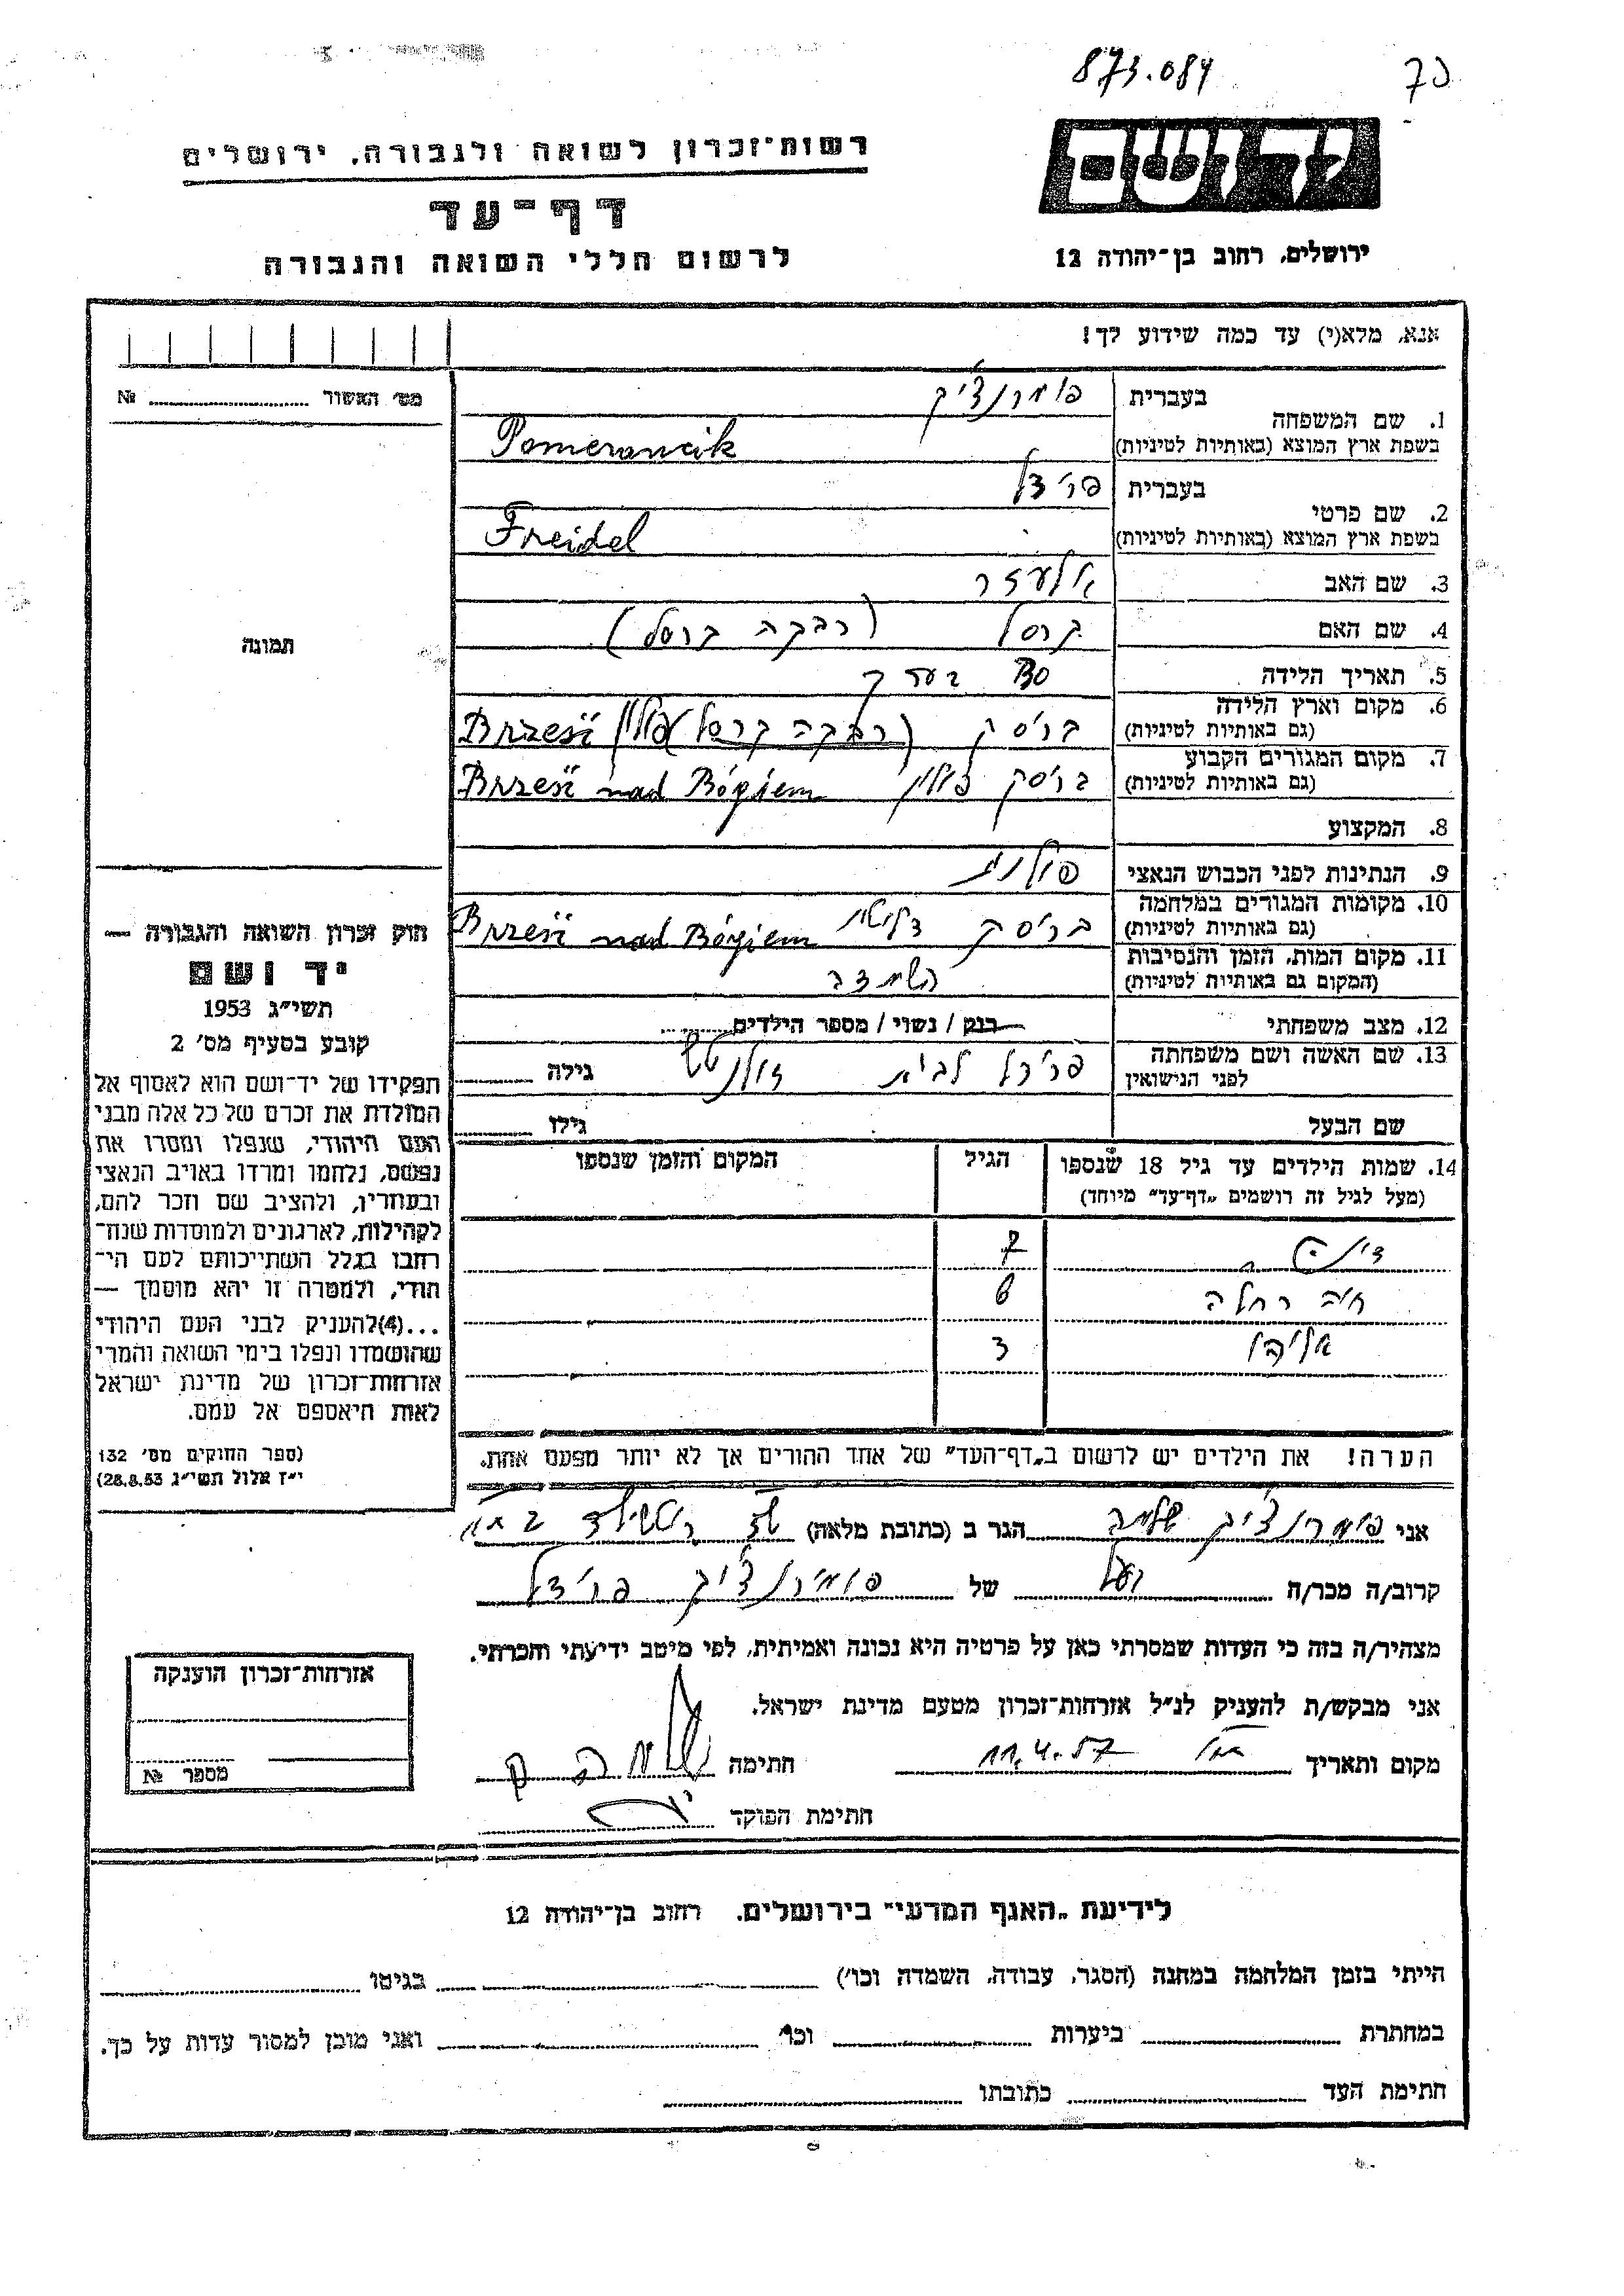 873.084
70
יד ושם
רשות־זכרון לשואה ולגבורה, ירושלים
דף־עד
לרשום חללי השואה והגבורה
ירושלים, רחוב בן־יהודה 12
אנא, מלא(י) עד כמה שידוע לך!
מס׳ האשור № 
1. שם המשפחה
בעברית
פומרנצ׳יק
בשפת ארץ המוצא (באותיות לטיניות)
Pomerancik
2. שם פרטי
בעברית
פרידל
בשפת ארץ המוצא (באותיות לטיניות)
Freidel
3. שם האב אלעזר
4. שם האם
תמונה
5. תאריך הלידה 30 בערך
6. מקום וארץ הלידה
(גם באותיות לטיניות) בריסק פולין Brześć
7. מקום המגורים הקבוע
(גם באותיות לטיניות) בריסק פולין Brześć nad Bógiem
8. המקצוע
9. הנתינות לפני הכבוש הנאצי פולנית
10. מקומות המגורים במלחמה
(גם באותיות לטיניות) בריסק דליטא Brześć nad Bógiem
11. מקום המות, הזמן והנסיבות
(המקום גם באותיות לטיניות)
12. מצב משפחתי רווק / נשוי / מספר הילדים
13. שם האשה ושם משפחתה
לפני הנישואין לבית גילה
שם הבעל גילו
14. שמות הילדים עד גיל 18 שנספו
(מעל לגיל זה רושמים „דף־עד״ מיוחד)
הגיל
המקום והזמן שנספו
7
חיה רחלה 6
אליהו 3
הערה! את הילדים יש לרשום ב„דף־העד״ של אחד ההורים אך לא יותר מפעם אחת.
חוק זכרון השואה והגבורה —
יד ושם
תשי״ג 1953
קובע בסעיף מס׳ 2
תפקידו של יד־ושם הוא לאסוף אל
המולדת את זכרם של כל אלה מבני
העם היהודי, שנפלו ומסרו את
נפשם, נלחמו ומרדו באויב הנאצי
ובעוזריו, ולהציב שם וזכר להם,
לקהילות, לארגונים ולמוסדות שנח־
רבו בגלל השתייכותם לעם הי־
הודי, ולמטרה זו יהא מוסמך —
...(4)להעניק לבני העם היהודי
שהושמדו ונפלו בימי השואה והמרי
אזרחות־זכרון של מדינת ישראל
לאות היאספם אל עמם.
(ספר החוקים מס׳ 132
י״ז אלול תשי״ג 28.8.53)
אני פומרנצ׳יק שלמה הגר ב (כתובת מלאה)
קרוב/ה מכר/ה בעל של פומרנצ׳יק פרידל
מצהיר/ה בזה כי העדות שמסרתי כאן על פרטיה היא נכונה ואמיתית, לפי מיטב ידיעתי והכרתי.
אני מבקש/ת להעניק לנ״ל אזרחות־זכרון מטעם מדינת ישראל.
מקום ותאריך 11.4.57 חתימה
חתימת הפוקד
אזרחות־זכרון הוענקה
מספר №
לידיעת „האגף המדעי״ בירושלים, רחוב בן־יהודה 12
הייתי בזמן המלחמה במחנה (הסגר, עבודה, השמדה וכו׳) בגיטו
במחתרת ביערות וכו׳ ואני מוכן למסור עדות על כך.
חתימת העד כתובתו